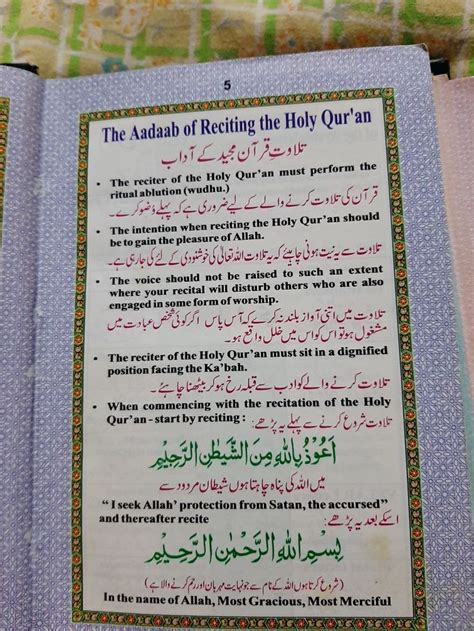 5
The Aadaab of Reciting the Holy Qur'an
تلاوتِ قرآن مجید کے آداب
• The reciter of the Holy Qur'an must perform the
ritual ablution (wudhu.)
قرآن کی تلاوت کرنے والے کے لیے ضروری ہے کہ پہلے وُضو کرے۔
• The intention when reciting the Holy Qur'an should
be to gain the pleasure of Allah.
تلاوت سے یہ نیت ہونی چاہیئے کہ یہ تلاوت اللہ تعالٰی کی خوشنودی کے لئے کی جارہی ہے۔
• The voice should not be raised to such an extent
where your recital will disturb others who are also
engaged in some form of worship.
تلاوت میں اتنی آواز بلند نہ کرے کہ آس پاس اگر کوئی شخص عبادت میں
مشغول ہو تو اس کو اس میں خلل واقع ہو۔
• The reciter of the Holy Qur'an must sit in a dignified
position facing the Ka'bah.
تلاوت کرنے والے کو ادب سے قبلہ رخ ہو کر بیٹھنا چاہئے۔
• When commencing with the recitation of the Holy
Qur'an - start by reciting :
تلاوت شروع کرنے سے پہلے یہ پڑھے:
اَعُوْذُ بِاللهِ مِنَ الشَّيْطٰنِ الرَّجِيْمِ
میں اللہ کی پناہ چاہتا ہوں شیطان مردود سے
“ I seek Allah' protection from Satan, the accursed”
and thereafter recite
اسکے بعد یہ پڑھے:
بِسْمِ اللهِ الرَّحْمٰنِ الرَّحِيْمِ
(شروع کرتا ہوں اللہ کے نام سے جو نہایت مہربان اور رحم کرنے والا ہے)
In the name of Allah, Most Gracious, Most Merciful